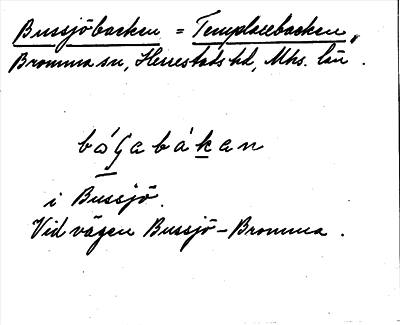 Bussjöbacken = Templarebacken,
Bromma sn, Herrestads hd, Mhs. län.
bo᷄ɕabákan
i Bussjö.
Vid vägen Bussjö-Bromma.